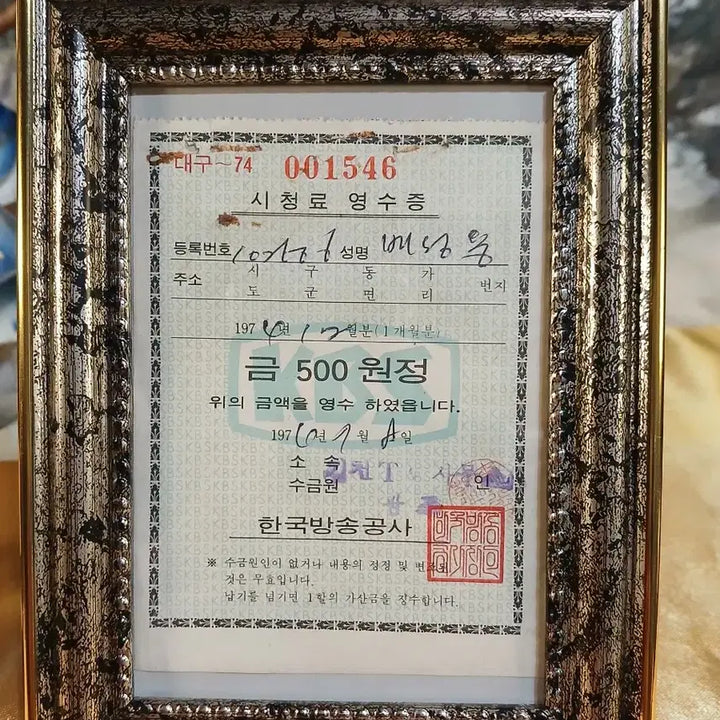 대구~74 001546
시청료 영수증
등록번호 성명
주소 시 구 동 가 번지
도 군 면 리
1974년 12월분(1개월분)
KBS
금 500 원정
위의 금액을 영수 하였읍니다.
197 년 월 일
소 속
수금원 인
한국방송공사
※ 수금원인이 없거나 내용의 정정 및 변조된
것은 무효입니다.
납기를 넘기면 1할의 가산금을 징수합니다.